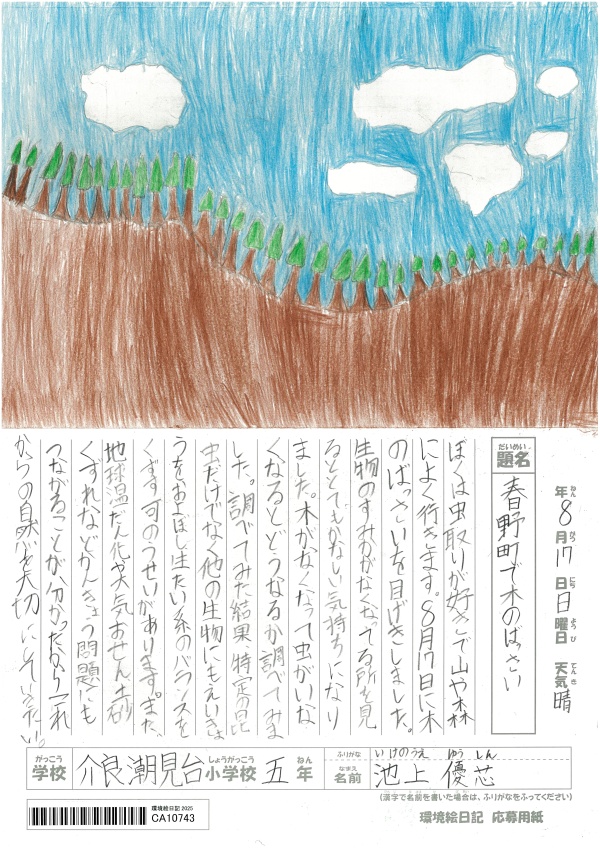 年 8月 17日 日曜日 天気 晴
ねん がつ にち ようび てんき
だいめい
題名
春野町で木のばっさい
ぼくは虫取りが好きで山や森
によく行きます。8月17日に木
のばっさいを目げきしました。
生物のすみかがなくなってる所を見
るととてもかなしい気持ちになり
ました。木がなくなって虫がいな
くなるとどうなるか調べてみま
した。調べてみた結果、特定の昆
虫だけでなく他の生物にもえいきょ
うをおよぼし生たい系のバランスを
くずす可のうせいがあります。また、
地球温だん化や大気おせん、土砂
くずれなどかんきょう問題にも
つながることが分かったからこれ
からの自然を大切にしていきたい。
がっこう
学校 介良潮見台 小学校 五 年
しょうがっこう ねん
ふりがな いけのうえ ゆう しん
なまえ
名前 池上 優芯
(漢字で名前を書いた場合は、ふりがなをふってください)
環境絵日記 2025
CA10743
環境絵日記 応募用紙